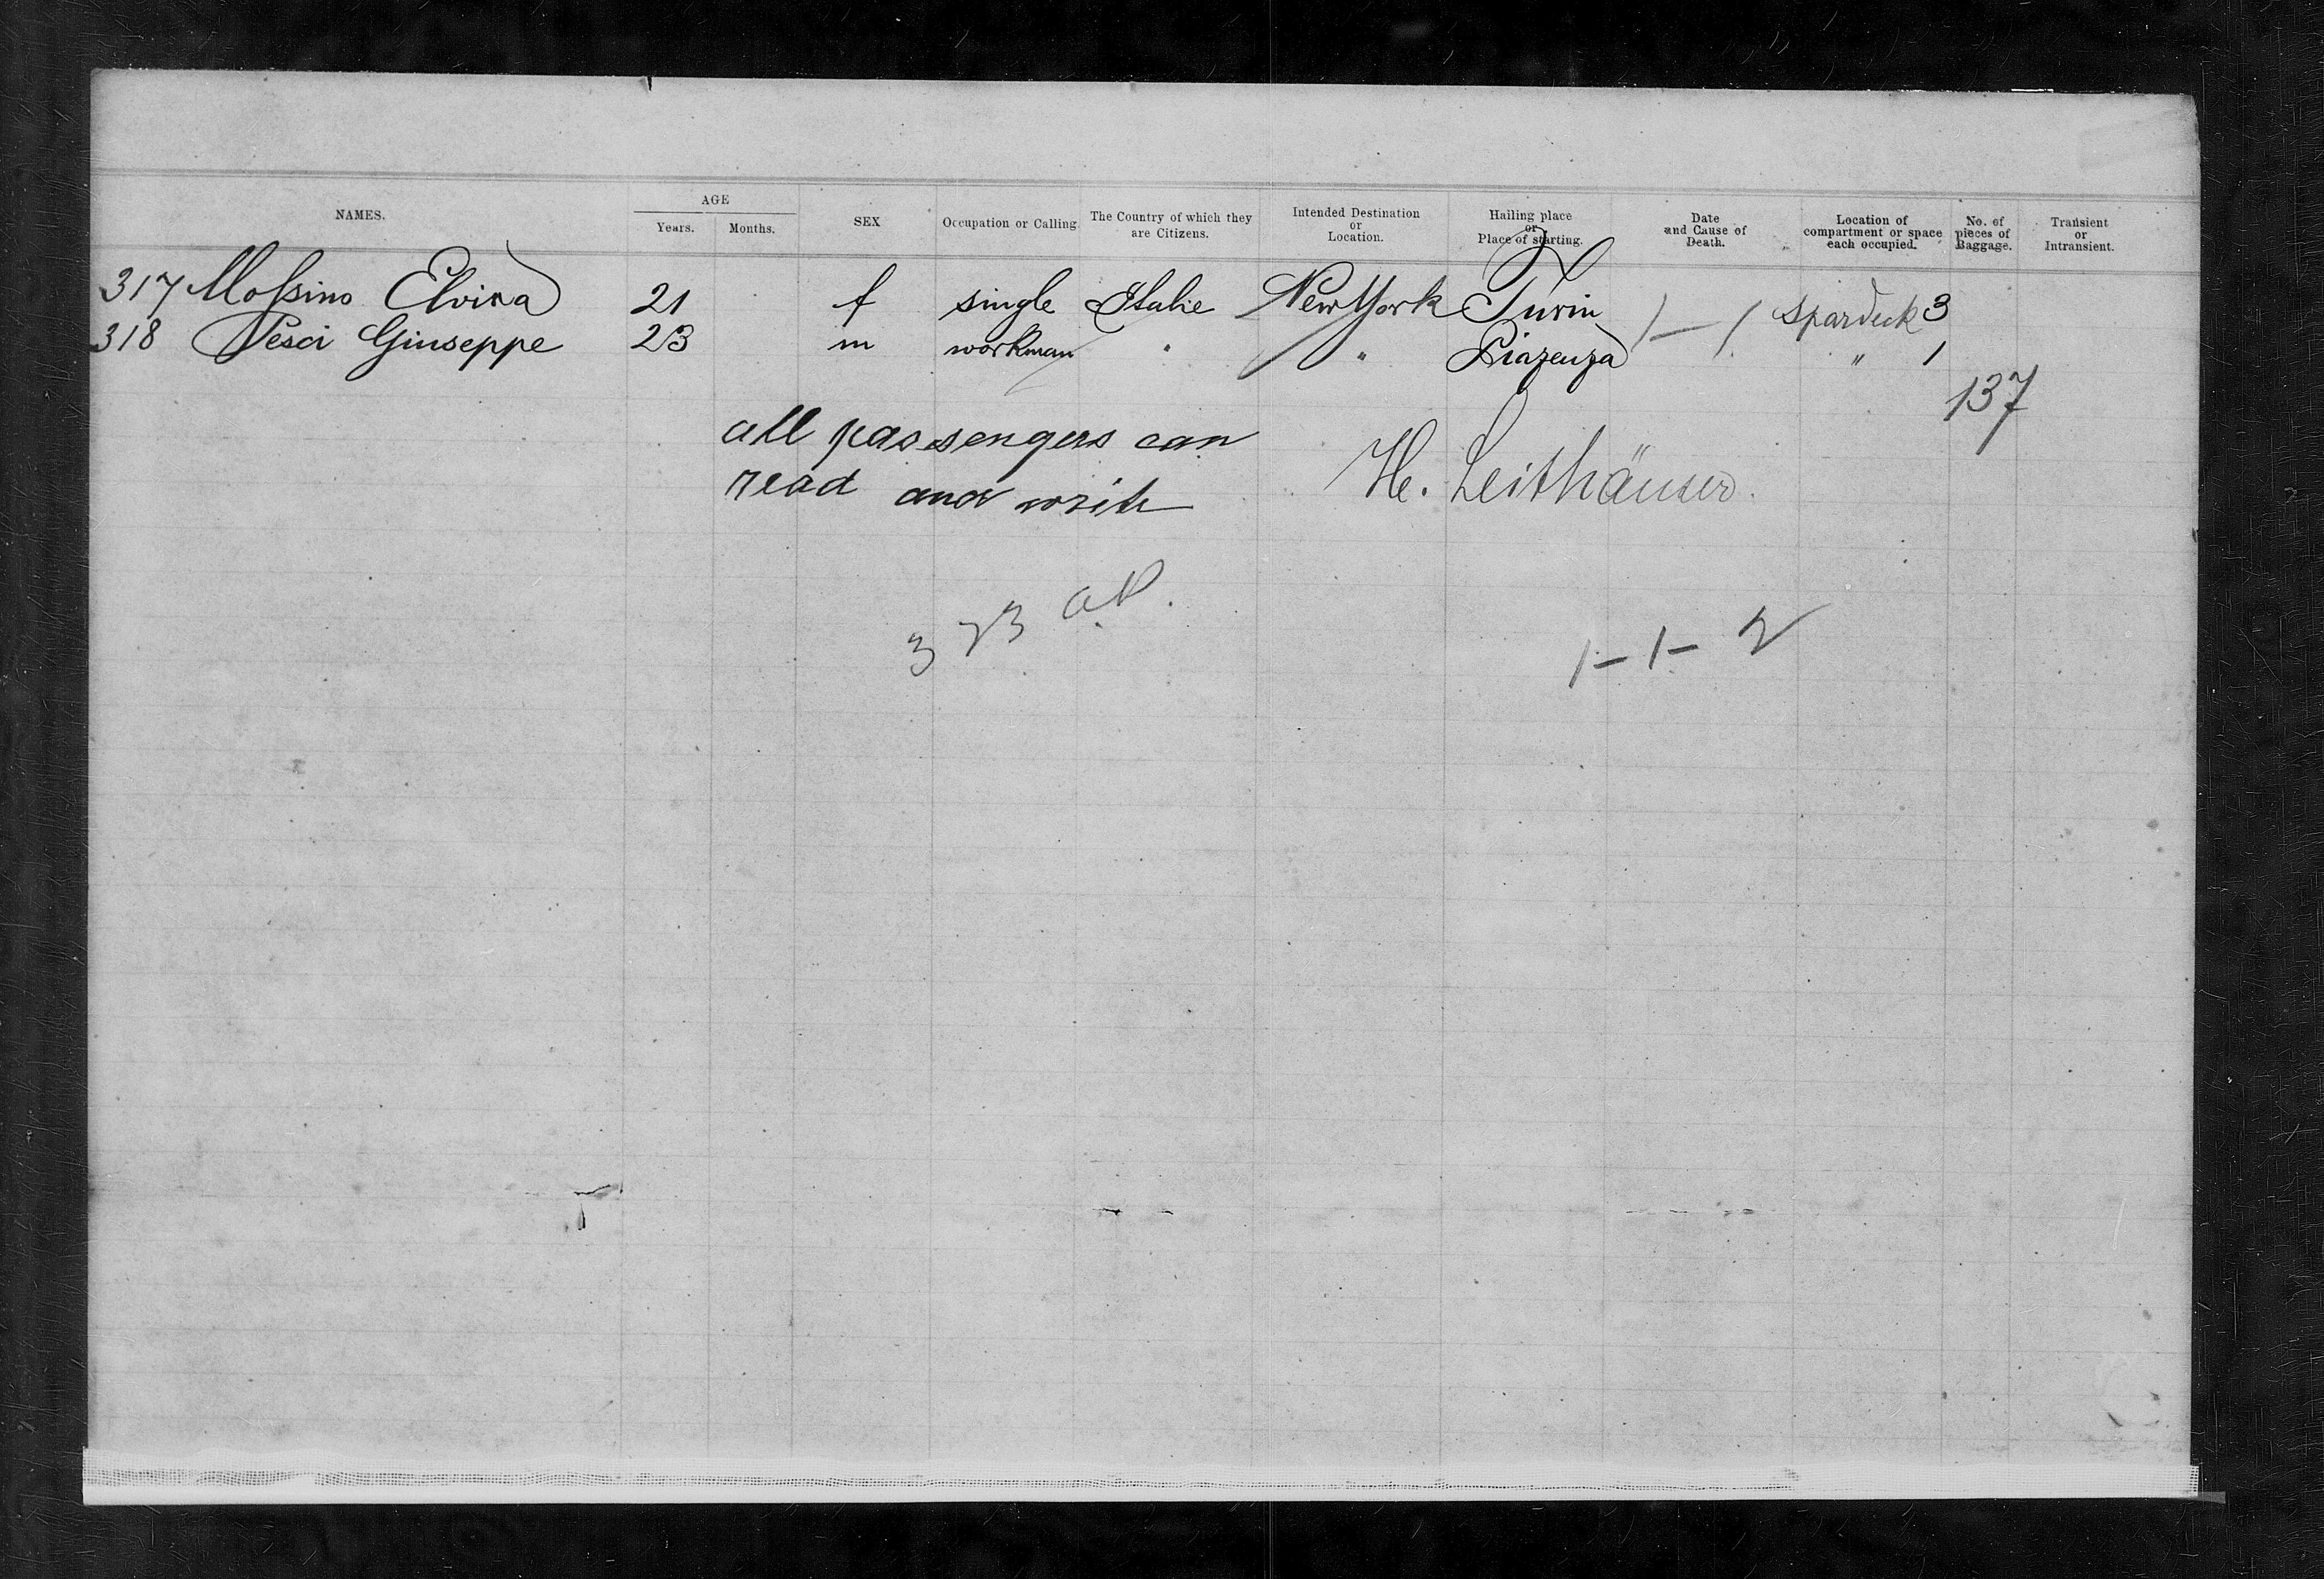 NAMES. AGE Years. Months. SEX Occupation or Calling. The Country of which they are Citizens. Intended Destination or Location. Hailing place or Place of starting. Date and Cause of Death. Location of compartment or space each occupied. No. of pieces of Baggage. Transient or Intransient.
317 Mossino Elvira 21 f single Italie New York Turin Spardeck 3
318 Pesci Giuseppe 23 m workman " " Piazenza " 1
137
all passengers can
read and write
H. Leithäuser.
323
1-1-2